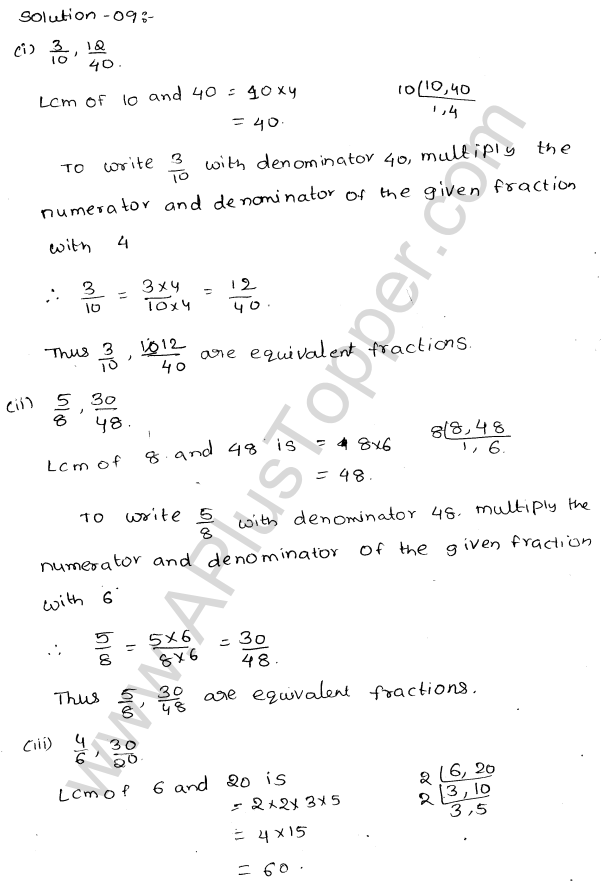 Solution-09:-
(i) 3/10, 12/40.
Lcm of 10 and 40 = 10×4 10 | 10,40
= 40. 1,4
To write 3/10 with denominator 40, multiply the
numerator and denominator of the given fraction
with 4
∴ 3/10 = 3×4/10×4 = 12/40.
Thus 3/10, 12/40 are equivalent fractions.
(ii) 5/8, 30/48.
Lcm of 8 and 48 is = 8×6 8 | 8,48
= 48. 1,6.
To write 5/8 with denominator 48. multiply the
numerator and denominator of the given fraction
with 6
∴ 5/8 = 5×6/8×6 = 30/48.
Thus 5/8, 30/48 are equivalent fractions.
(iii) 4/6, 30/20.
Lcm of 6 and 20 is 2 | 6,20
= 2×2×3×5 2 | 3,10
= 4×15 3,5
= 60.
www.APlusTopper.com